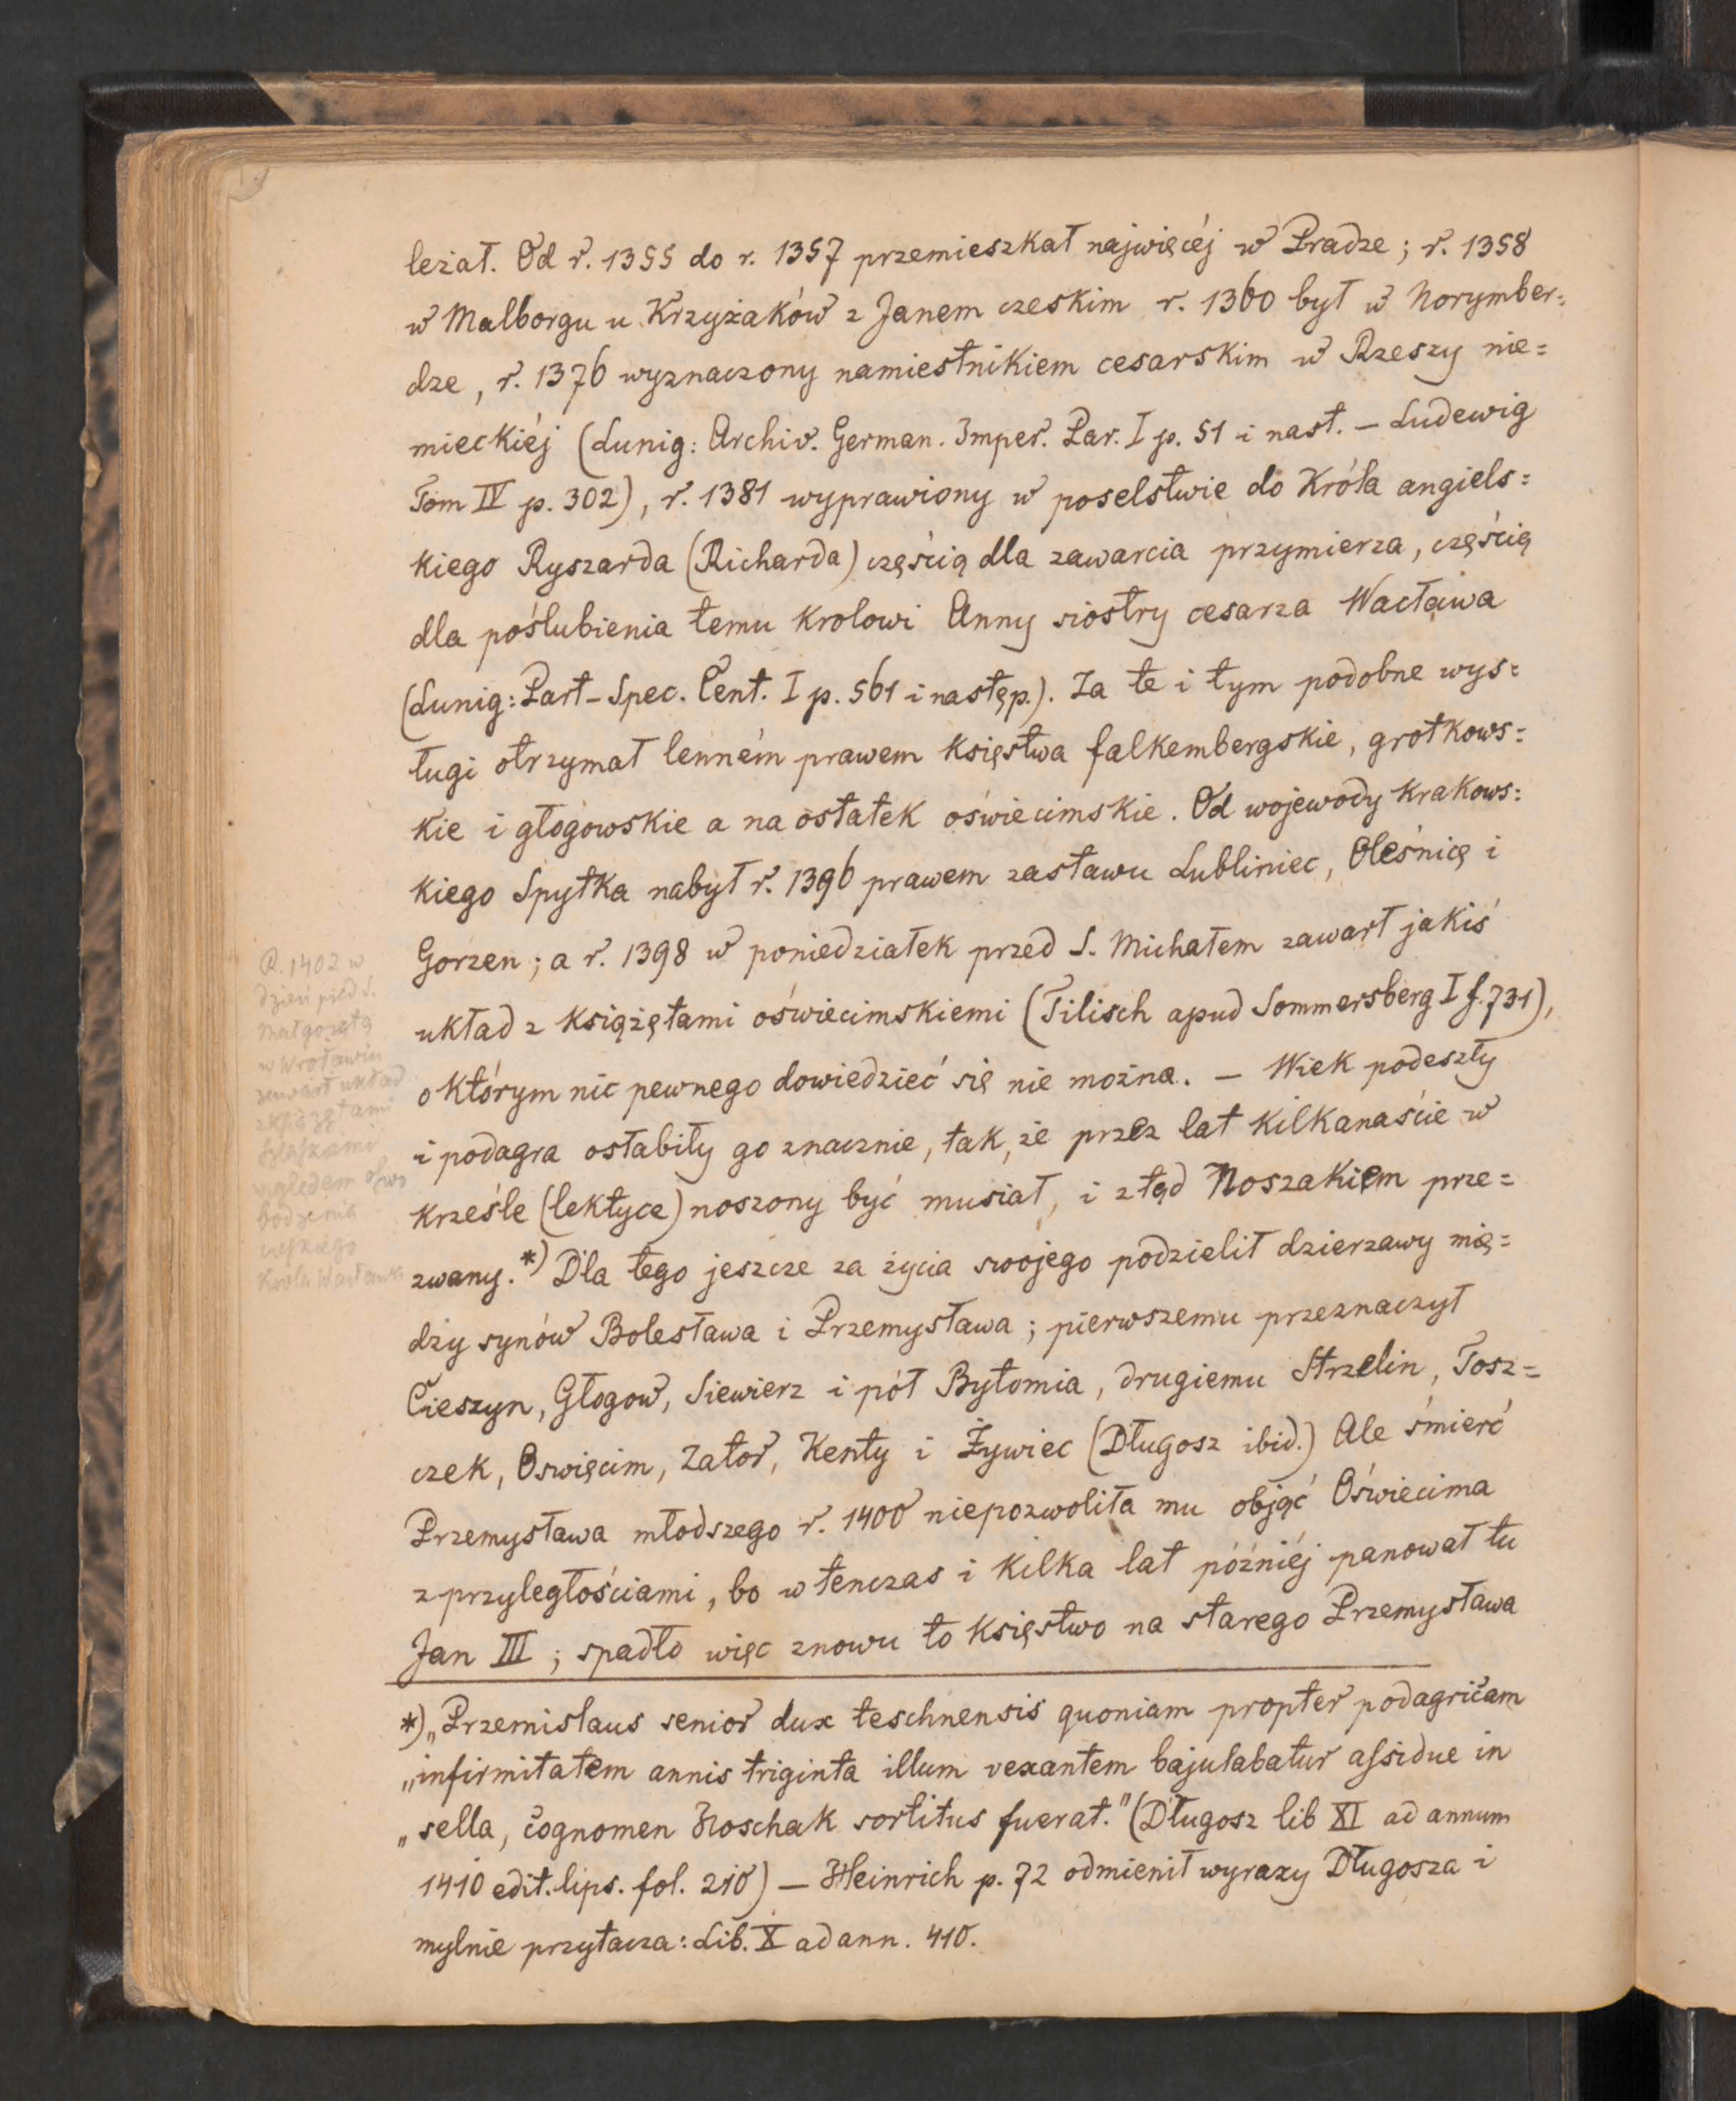 leżał. Od r. 1355 do r. 1357 przemieszkał najwięcéj w Pradze; r. 1358
w Malborgu u Krzyżaków z Janem czeskim r. 1360 był w Norymber=
dze, r. 1376 wyznaczony namiestnikiem cesarskim w Rzeszy nie=
mieckiéj (Lunig: Archiv. German. Imper. Par. I p. 51 i nast. – Ludewig
Tom IV p. 302), r. 1381 wyprawiony w poselstwie do Króla angiels=
kiego Ryszarda (Richarda) częścią dla zawarcia przymierza, częścią
dla poślubienia temu krolowi Anny siostry cesarza Wacława
(Lunig: Part-Spec. Cent. I p. 561 i następ.). Za te i tym podobne wys=
ługi otrzymał lenném prawem księstwa falkembergskie, grotkows=
kie i głogowskie a na ostatek oświecimskie. Od wojewody krakows=
kiego Spytka nabył r. 1396 prawem zastawu Lubliniec, Oleśnicę i
Gorzen; a r. 1398 w poniedziałek przed S. Michałem zawarł jakiś
układ z książętami oświecimskiemi (Tilisch apud Sommersberg I f. 731),
o którym nic pewnego dowiedzieć się nie można. – Wiek podeszły
i podagra osłabiły go znacznie, tak, że przez lat kilkanaście w
krześle (lektyce) noszony być musiał, i ztąd Noszakiem prze=
zwany.*) Dla tego jeszcze za życia swojego podzielił dzierzawy mię=
dzy synów Bolesława i Przemysława; pierwszemu przeznaczył
Cieszyn, Głogow, Siewierz i pół Bytomia, drugiemu Strzelin, Tosz=
czek, Oswięcim, Zator, Kenty i Żywiec (Długosz ibid.) Ale śmierć
Przemysława młodszego r. 1400 niepozwoliła mu objąć Oświecima
z przyległościami, bo w tenczas i kilka lat późniéj panował tu
Jan III; spadło więc znowu to księstwo na starego Przemysława
*) „Przemislaus senior dux teschnensis quoniam propter podagricam
„infirmitatem annis triginta illum vexantem bajulabatur assidue in
„sella, cognomen Noschak sortitus fuerat." (Długosz lib XI ad annum
1410 edit. lips. fol. 210) – Heinrich p. 72 odmienił wyrazy Długosza i
mylnie przytacza: Lib. X ad ann. 410.
R. 1402 w
dzień przed S.
Małgorzatą
w Wrocławiu
zawarł układ
z książętami
względem oswo
bodzenia
czeskiego
Króla Wacława